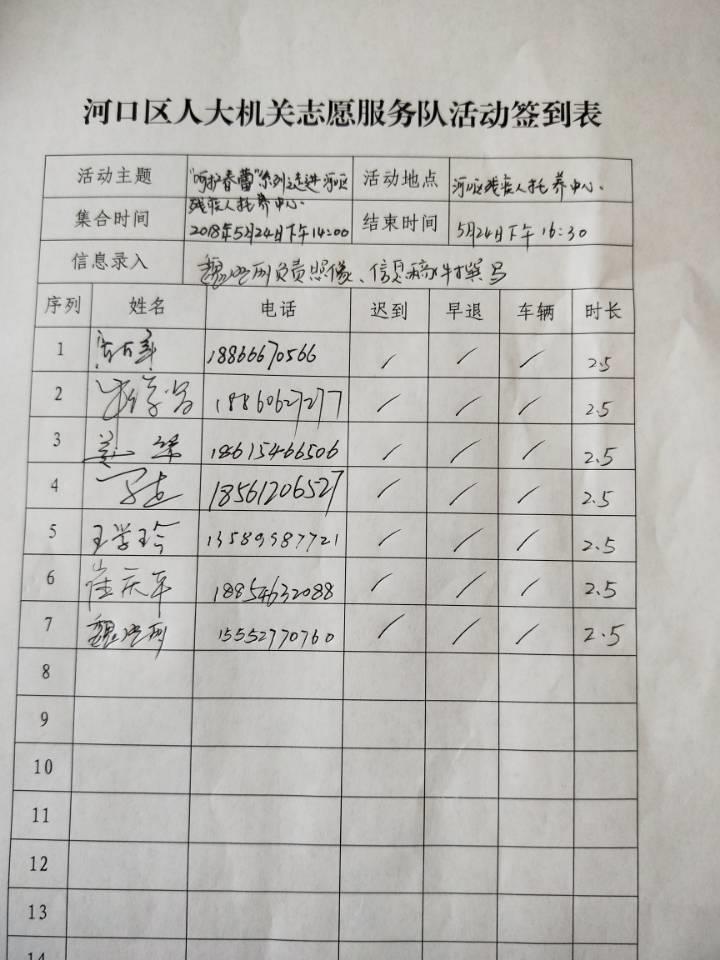 河口区人大机关志愿服务队活动签到表
活动主题 "呵护春蕾"系列走进河口区残疾人托养中心 活动地点 河口区残疾人托养中心.
集合时间 2018年5月24日下午14:00 结束时间 5月24日下午16:30
信息录入 负责照像、信息稿件撰写
序列 姓名 电话 迟到 早退 车辆 时长
1 18866670566 / / / 2.5
2 18860627277 / / / 2.5
3 18615466506 / / / 2.5
4 18561206527 / / / 2.5
5 王学玲 13589987721 / / / 2.5
6 崔庆军 18854632088 / / / 2.5
7 15552770760 / / / 2.5
8
9
10
11
12
13
14